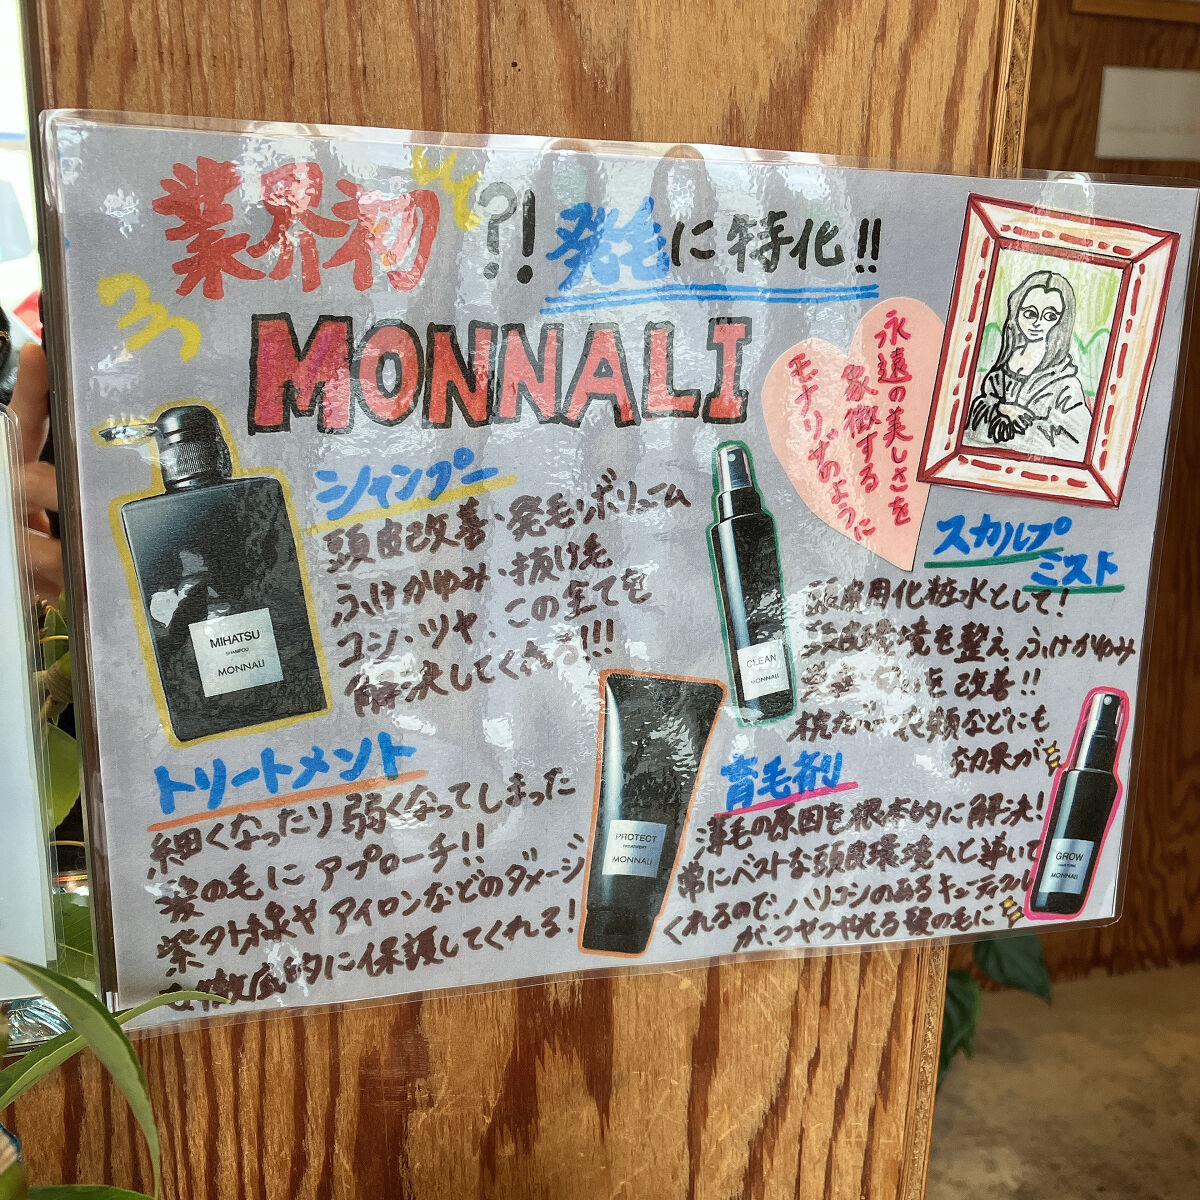 業界初?! 発毛に特化!!
MONNALI
永遠の美しさを
象徴する
モナ・リザのように
シャンプー
頭皮改善・発毛・ボリューム
ふけかゆみ・抜け毛
コシ・ツヤ、この全てを
解決してくれる!!!
MIHATSU
SHAMPOO
MONNALI
スカルプ
ミスト
頭皮用化粧水として!
頭皮環境を整え ふけかゆみ
を改善!!
枕カバー 衣類などにも
効果が
CLEAN
MONNALI
トリートメント
細くなったり弱くなってしまった
髪の毛にアプローチ!!
紫外線やアイロンなどのダメージ
を徹底的に保護してくれる!
PROTECT
TREATMENT
MONNALI
育毛剤
薄毛の原因を根本的に解決!
常にベストな頭皮環境へと導いて
くれるので、ハリコシのあるキューティクル
が、つやつや光る髪の毛に
GROW
HAIR TONIC
MONNALI